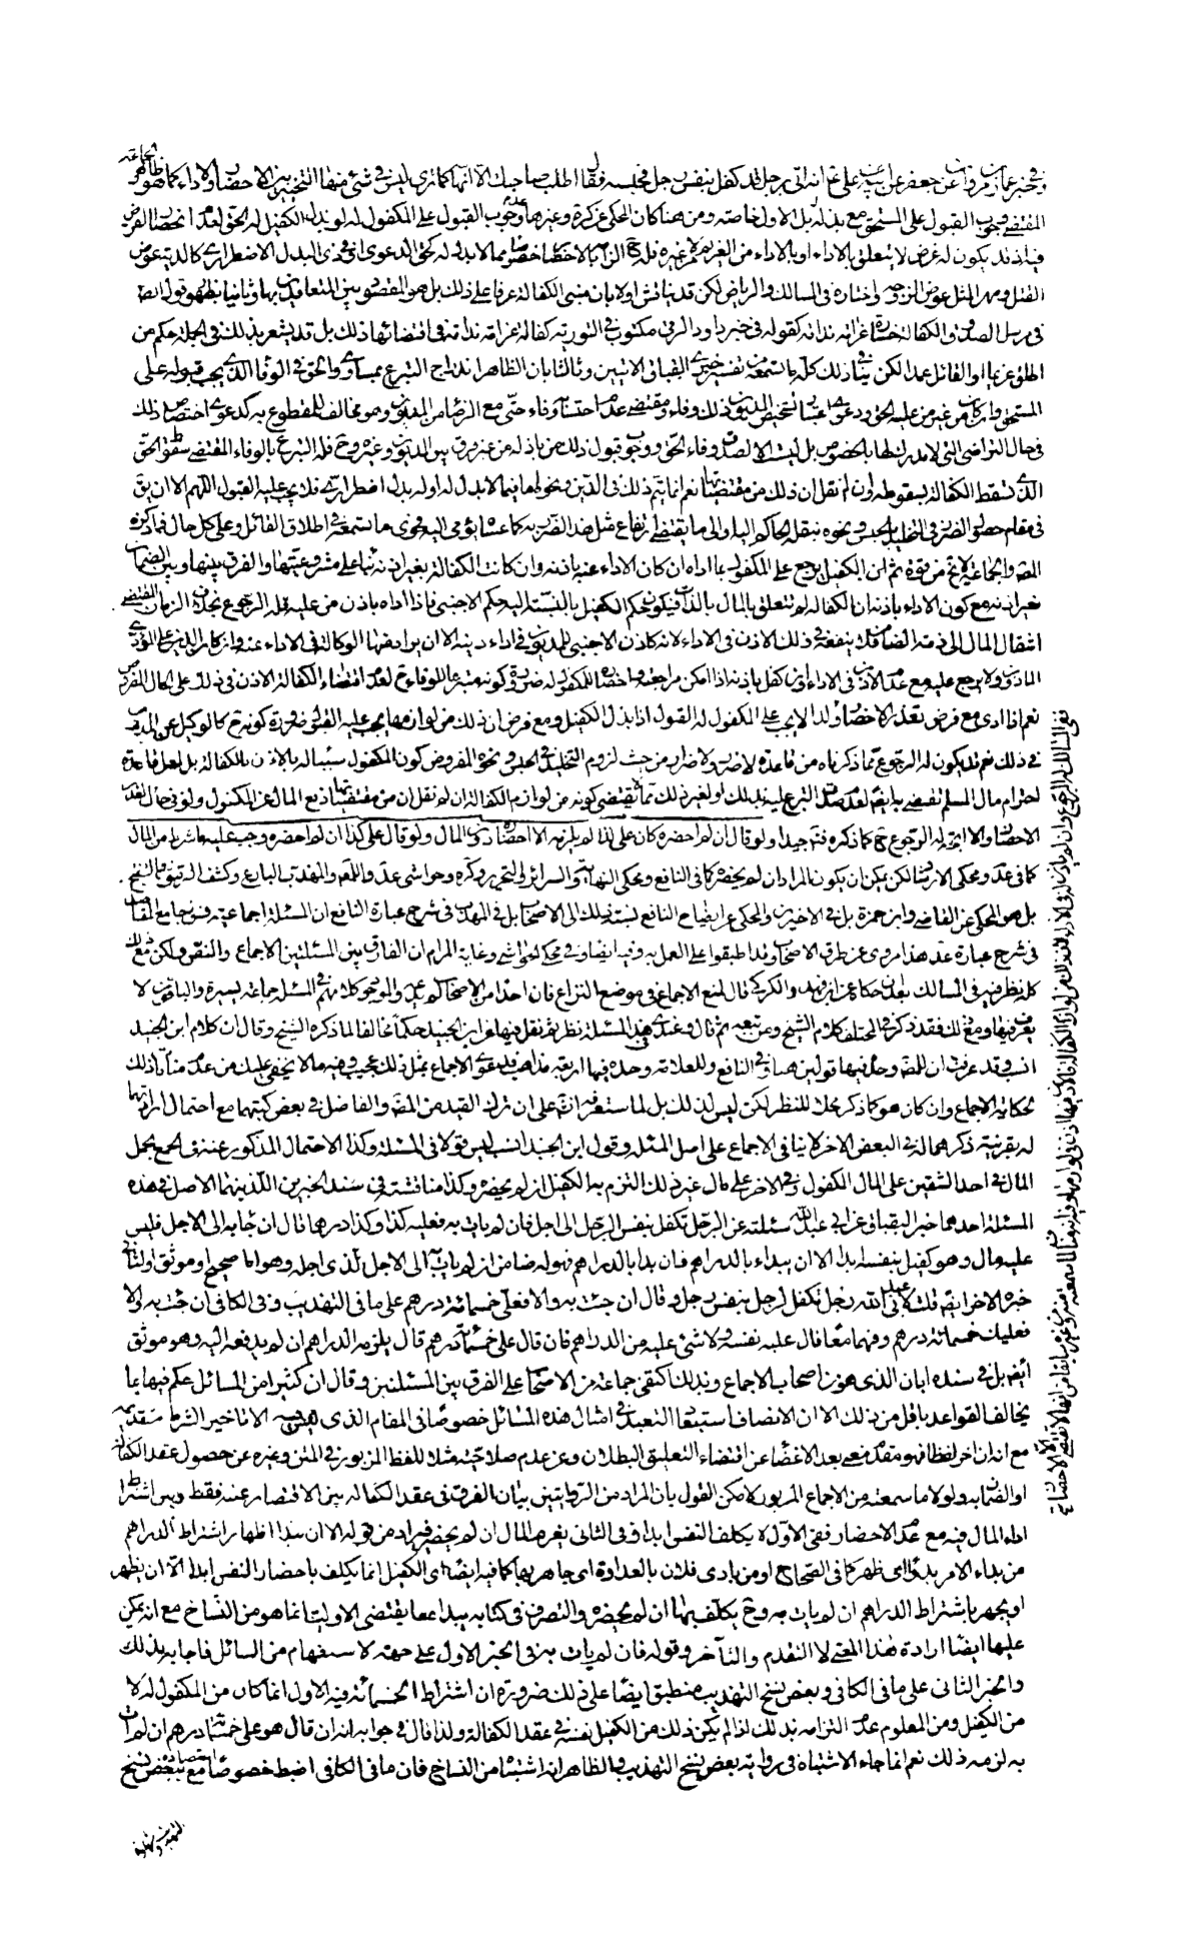 وفي خبر عمار بن مروان عن جعفر عن ابيه عن علي ع انه اتى برجل قد كفل بنفس رجل فحبسه فقال اطلب صاحبك الا انها كما ترى ليس في شئ منها التخيير بين الاحضار والاداء كما هو ظاهر الجماعة
المقتضي وجوب القبول على المستحق مع بذله بل الاول خاصة ومن هنا كان المحكي عن كرة وغيرها عدم وجوب القبول على المكفول له لو بذله الكفيل له الحق لعدم انحصار الغرض
فيه اذ قد يكون له غرض لا يتعلق بالاداء او بالاداء من الغريم لا غيره فله ح الزامه بالاحضار خصوصا فيما لا بدل له كحق الدعوى او في ذي البدل الاضطراري كالدية عوض
القتل ومهر المثل عوض الزوجة واختاره في المسالك والرياض لكن قد يناقش اولا بان مبنى الكفالة عرفا على ذلك بل هو المقصود بين المتعاقدين بها وثانيا بظهور قوله ايضا
في مرسل الصدوق الكفالة خسارة غرامة ندامة كقوله في خبر داود الرقي مكتوب في التورية كفالة غرامة ندامة في اقتضائها ذلك بل قد يشعر بذلك في الجملة حكم من
اطلق غريما او القاتل عمدا لكن ينافي ذلك كله ما تسمعه من تفسير خبري البقباق الاتيين وثالثا بان الظاهر اندراج التبرع بمساوي الحق في الوفاء الذي يجب قبوله على
المستحق وان كان من غير من عليه الحق ودعوى اعتبار تشخيص المديون ذلك وفاء ومقتضى عدمه احتسابه وفاء حتى مع الرضا من المديون وهو مخالف للمقطوع به كدعوى اختصاص ذلك
في حال التراضي التي لا مدرك لها بالخصوص بل ليست الا لصدق وفاء الحق ووجوب قبول ذلك من باذله من غير فرق بين المديون وغيره وح فله التبرع بالوفاء المقتضي سقوط الحق
الذي تسقط الكفالة بسقوطه وان لم نقل ان ذلك من مقتضياتها نعم انما يتم ذلك في الدين ونحوه اما فيما لا بدل له او له بدل اضطراري فلا يجب عليه القبول اللهم الا ان يق
في مقام حصول الضرر في التخليد بالحبس ونحوه ينقله الحاكم الى البدل والى ما يقتضي ارتفاع مثل هذا الضرر به كما عساه يومي اليه فحوى ما تسمعه في اطلاق القاتل وعلى كل حال فما ذكره
المصنف والجماعة لا يخ من قوة ثم ان الكفيل يرجع على المكفول بما اداه ان كان الاداء عنه باذنه وان كانت الكفالة بغير اذنه بناء على مشروعيتها والفرق بينها وبين الضمان
بغير اذنه مع كون الاداء باذنه ان الكفالة لم تتعلق بالمال بالذات فيكون حكم الكفيل بالنسبة اليه حكم الاجنبي فاذا اداه باذن من عليه فله الرجوع بخلاف الزمان المقتضي
انتقال المال الى ذمة الضامن فلا ينفعه في ذلك الاذن في الاداء لانه كاذن الاجنبي للمديون في اداء دينه الا ان يراد منها الوكالة في الاداء عنه وان كان الدين على المؤدي
الماذون ولا يرجع عليه مع عدم الاذن في الاداء وان كفل باذنه اذا امكن مراجعته واحضاره للمكفول له ضرورة كونه متبرعا بالوفاء ح لعدم اقتضاء الكفالة الاذن في ذلك على الحال المفروض
نعم اذا ادى مع فرض تعذر الاحضار ولذا لا يجب على المكفول له القبول اذا بذل الكفيل ومع فرض ان ذلك من لوازمها يجب عليه القبول ضرورة كونه ح كالوكيل عن المديون
في ذلك نعم قد يكون له الرجوع مما ذكرناه من قاعدة لا ضرر ولا ضرار من حيث لزوم التخليد في الحبس ونحوه المفروض كون المكفول سببا له بالاذن بالكفالة بل لعل قاعدة
احترام مال المسلم تقضي به ايضا لعدم صدق التبرع عليه بذلك او لغير ذلك مما يقتضي كونه من لوازم الكفالة ان لم نقل ان من مقتضياتها دفع المال عن المكفول ولو في حال تعذر
الاحضار والا اتجه له الرجوع ح كما ذكره فتم جيدا ولو قال ان لم احضره كان علي كذا لم يلزمه الا احضاره دون المال ولو قال علي كذا ان لم احضره وجب عليه ما شرط من المال
كما في عد ومحكي الارشاد لكن يمكن ان يكون المراد ان لم يحضره كما في النافع ومحكي النهاية والسرائر والتحرير وكره وحواشي عد واللمعة والمهذب البارع وكشف الرموز والتنقيح
بل هو المحكي عن القاضي وابن حمزة بل في الاخيرين والمحكي عن ايضاح النافع نسبة ذلك الى الاصحاب بل في المهذب في شرح عبارة النافع ان المسئلة اجماعية وفي جامع المقاصد
في شرح عبارة عد هذا مروي عن طرق الاصحاب وقد اطبقوا على العمل به وفيه ايضا وفي محكي الحواشي وغاية المرام ان الفارق بين المسئلتين الاجماع والنص ولكن مع ذلك
كله نظر فيه في المسالك بعد ان حكاه عن ابن فهد والكركي قال لمنع الاجماع في موضع النزاع فان احدا من الاصحاب لم يدعه والموجود كلامهم في المسئلة جماعة يسيرة والباقون لا
يعرف فيها ومع ذلك فقد ذكر في المختلف كلام الشيخ ومن تبعه ثم قال وعندي في هذه المسئلة نظر ثم نقل فيها عن ابن الجنيد حكما مخالفا لما ذكره الشيخ وقال ان كلام ابن الجنيد
انسب وقد عرفت ان للمصنف وحده فيها قولين هنا وفي النافع وللعلامة وحده فيها اربعة مذاهب فدعوى الاجماع بمثل ذلك عجيب وفيه ما لا يخفى عليك من عدم منافاة ذلك
لحكاية الاجماع وان كان هو كما ذكر محلا للنظر لكن ليس لذلك بل لما ستعرفه انش على ان ترك القيد من المصنف والفاضل في بعض كتبهما مع احتمال ارادتهما
له بقرينة ذكرهما له في البعض الاخر لا ينافي الاجماع على اصل المسئلة وقول ابن الجنيد انسب ليس قولا في المسئلة وكذا الاحتمال المذكور عنه في الجمع بحمل
المال في احد الشقين على المال المكفول وفي الاخر على مال غير ذلك التزم به الكفيل ان لم يحضره وكذا مناقشته في سند الخبرين اللذين هما الاصل في هذه
المسئلة احدهما خبر البقباق عن ابي عبد الله سئلته عن الرجل تكفل بنفس الرجل الى اجل فان لم يات به فعليه كذا وكذا درهما قال ان جاء به الى الاجل فليس
عليه مال وهو كفيل بنفسه ابدا الا ان يبداء بالدراهم فان بدا بالدراهم فهو له ضامن ان لم يات به الى الاجل الذي اجله وهو اما صحيح او موثق والثاني
خبره الاخر ايضا قلت لابي عبد الله رجل تكفل لرجل بنفس رجل وقال ان جئت به والا فعلي خمسمائة درهم على ما في التهذيب وفي الكافي ان جئت به والا
فعليك خمسمائة درهم وفيهما معا قال عليه نفسه ولا شئ عليه من الدراهم فان قال علي خمسمائة درهم قال يلزمه الدراهم ان لم يدفعه اليه وهو موثق
ايضا بل في سنده ابان الذي هو من اصحاب الاجماع ولذلك اكتفى جماعة من الاصحاب على الفرق بين المسئلتين وقال ان كثيرا من المسائل حكم فيها بما
يخالف القواعد باقل من ذلك الا ان الانصاف استبعاد التعبد في امثال هذه المسائل خصوصا في المقام الذي ليس فيه الا تاخير الشرط وتقديمه
مع انه ان اخر لفظا فهو مقدم معنى بعد الاغضاء عن اقتضاء التعليق البطلان وعن عدم صلاحية مثل اللفظ المزبور في المتن وغيره عن حصول عقد الكفالة
او الضمان به ولولا ما سمعته من الاجماع المزبور لامكن القول بان المراد من الروايتين بيان الفرق في عقد الكفالة بين الاقتصار عنه فقط وبين اشتراط
اداء المال فيه مع عدم الاحضار ففي الاول لا يكلف النفس ابدا وفي الثاني يغرم المال ان لم يحضر فيراد من قوله الا ان يبدا اظهار اشتراط الدراهم
من بداء الامر بدوا اي ظهر كما في الصحاح او من بادى فلان بالعداوة اي جاهر بها كما فيه ايضا اي الكفيل انما يكلف باحضار النفس ابدا الا ان يظهر
او يجهر باشتراط الدراهم ان لم يات به وح يكلف بها ان لم يحضره والتصرف في كتابة يبدا معا يقتضي الاولية انما هو من النساخ مع انه يمكن
عليها ايضا ارادة هذا المعنى لا التقدم والتأخر وقوله فان لم يات به في الخبر الاول على جهة لاستفهام من السائل فاجابه بذلك
والخبر الثاني على ما في الكافي وبعض نسخ التهذيب منطبق ايضا على ذلك ضرورة ان اشتراط الخمسمائة فيه الاول انما كان من المكفول له لا
من الكفيل ومن المعلوم عدم التزامه بذلك اذا لم يكن ذلك من الكفيل نفسه في عقد الكفالة ولذا قال في جوابه انه ان قال هو علي خمسمائة درهم ان لم ات
به لزمه ذلك نعم انما جاء الاشتباه في رواية بعض نسخ التهذيب والظاهر انه اشتباه من النساخ فان ما في الكافي اضبط خصوصا مع اعتضاده ببعض نسخ
التهذيب